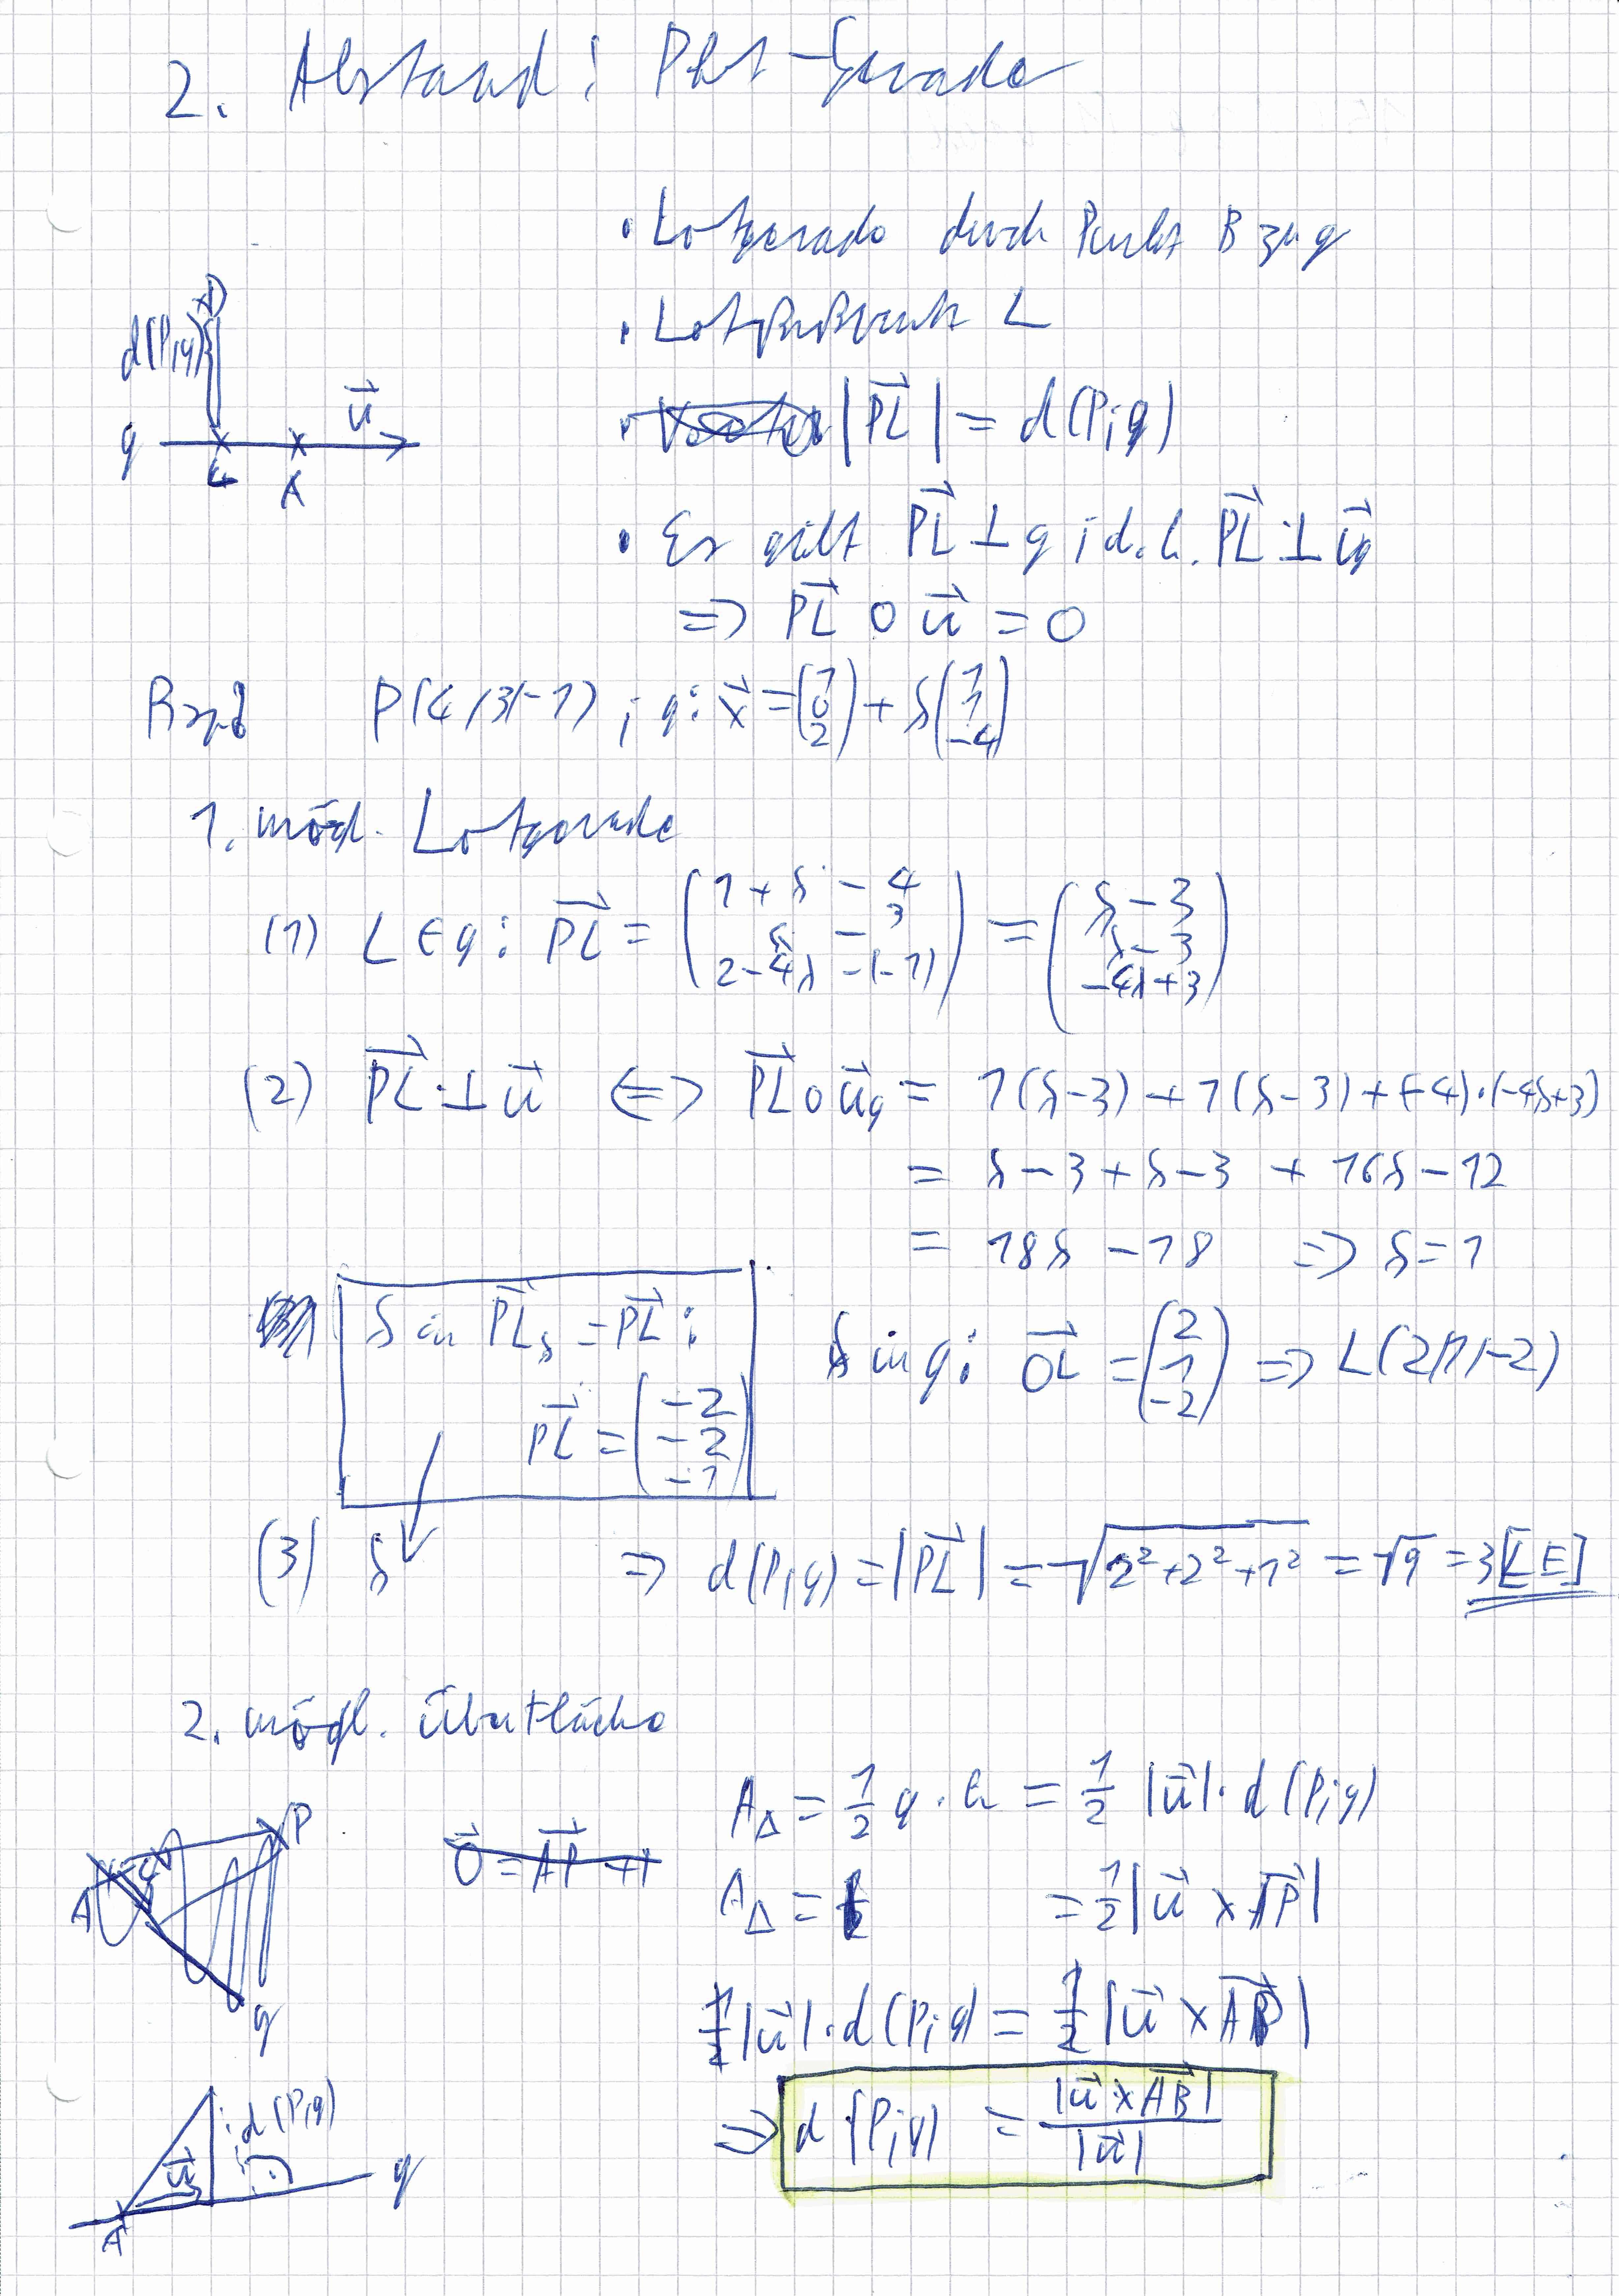 2. Abstand: Pkt-Gerade
• Lotgerade durch Punkt B zu g
• Lotfußpunkt L
• |PL⃗| = d(P;g)
• Es gilt PL⃗ ⊥ g ; d.h. PL⃗ ⊥ u⃗g
=> PL⃗ ∘ u⃗ = 0
P
d(P;g)
u⃗
g
L
A
Bspl P(4/3/-1) ; g: x⃗ = (1 0 2) + s (1 1 -4)
1. mögl. Lotgerade
(1) L ∈ g: PL⃗ = (1+s-4 s-3 2-4s-(-1)) = (s-3 s-3 -4s+3)
(2) PL⃗ ⊥ u⃗ <=> PL⃗ ∘ u⃗g = 1(s-3)+1(s-3)+(-4)·(-4s+3)
= s-3+s-3 + 16s-12
= 18s -18 => s=1
s in PL⃗s = PL⃗:
PL⃗ = (-2 -2 -1)
s in g: OL⃗ = (2 1 -2) => L(2/1/-2)
(3) s => d(P;g) = |PL⃗| = √2²+2²+1² = √9 = 3[LE]
2. mögl. über Fläche
P
A
g
O⃗ = AP⃗ +
A△ = 1/2 g · h = 1/2 |u⃗| · d(P;g)
A△ = = 1/2 |u⃗ x AP⃗|
1/2 |u⃗| · d(P;g) = 1/2 |u⃗ x AP⃗|
=> d(P;g) = |u⃗ x AB⃗| / |u⃗|
d(P;g)
u⃗
g
A